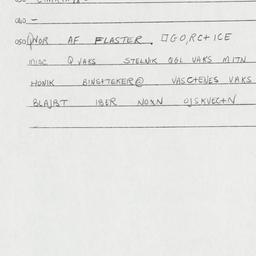 060 —
050 QVOR AF FLASTER. □GO,RC+ICE
MISC Q VAKS STELNIK OGL VAKS MITN
HONIK BINSHTEKER@ VASC+ENES VAKS
BLAJBT IBER NOXN OJSKVEC+N